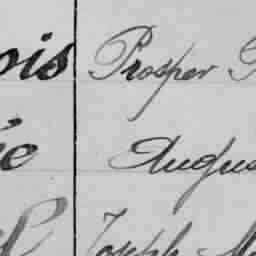 ois Prosper
ée Augus
Joseph